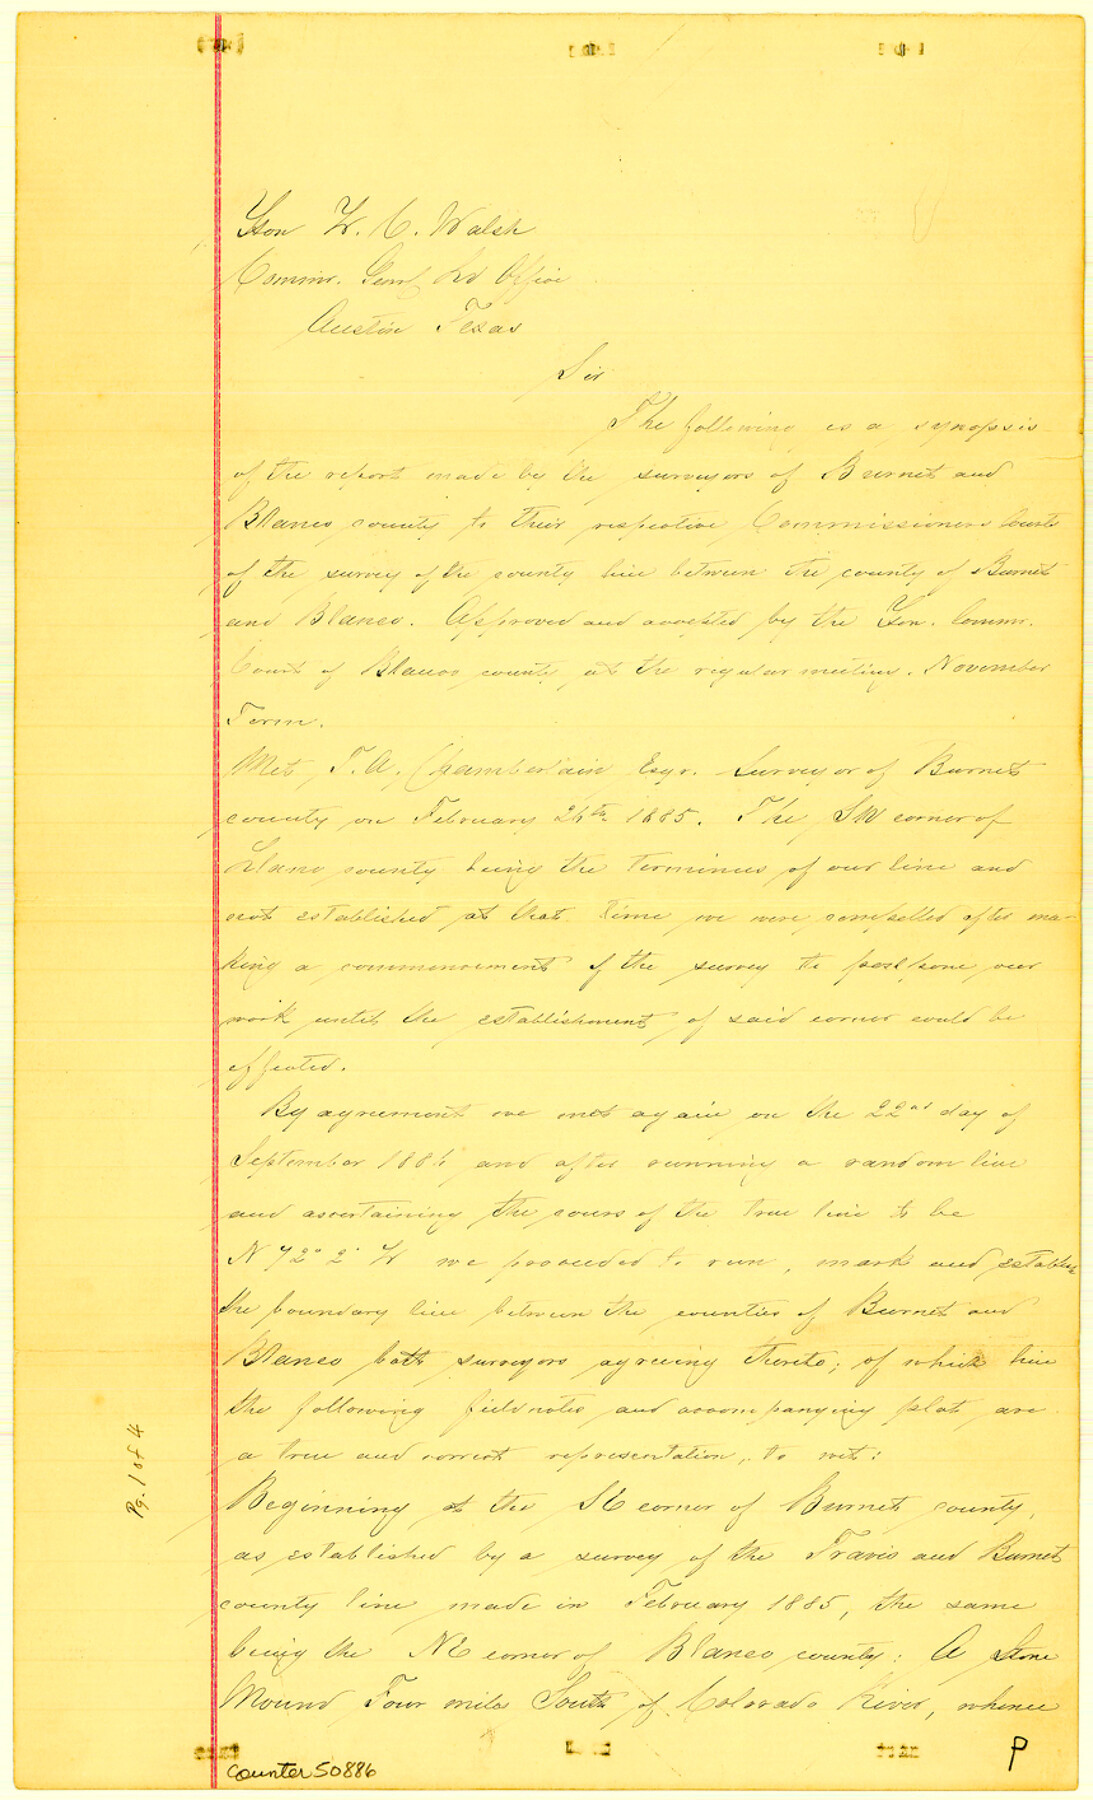 Hon W. C. Walsh
Commr. Genrl Ld Office
Austin Texas
Sir
The following is a synopsis
of the report made by the surveyors of Burnet and
Blanco county to their respective Commissioners Courts
of the survey of the county line between the county of Burnet
and Blanco. Approved and accepted by the Hon. Commr.
Court of Blanco county at the regular meeting. November
Term.
Met T. A. Chamberlain Esqr. Surveyor of Burnet
county on February 26th 1885. The SW corner of
Llano county being the terminus of our line and
not established at that time we were compelled after ma-
king a commencement of the survey to postpone our
work until the establishment of said corner could be
effected.
By agreement we met again on the 22nd day of
September 188 and after running a random line
and ascertaining the cours of the true line to be
N 72° 2' W we proceeded to run, mark and establish
the boundary line between the counties of Burnet and
Blanco both surveyors agreeing thereto; of which line
the following fieldnotes and accompanying plat are
a true and correct representation, to wit:
Beginning at the SE corner of Burnet county,
as established by a survey of the Travis and Burnet
county line made in February 1885, the same
being the NE corner of Blanco county: A Stone
Mound Four miles South of Colorado River, whence
Pg. 1 of 4
counter 50886
P